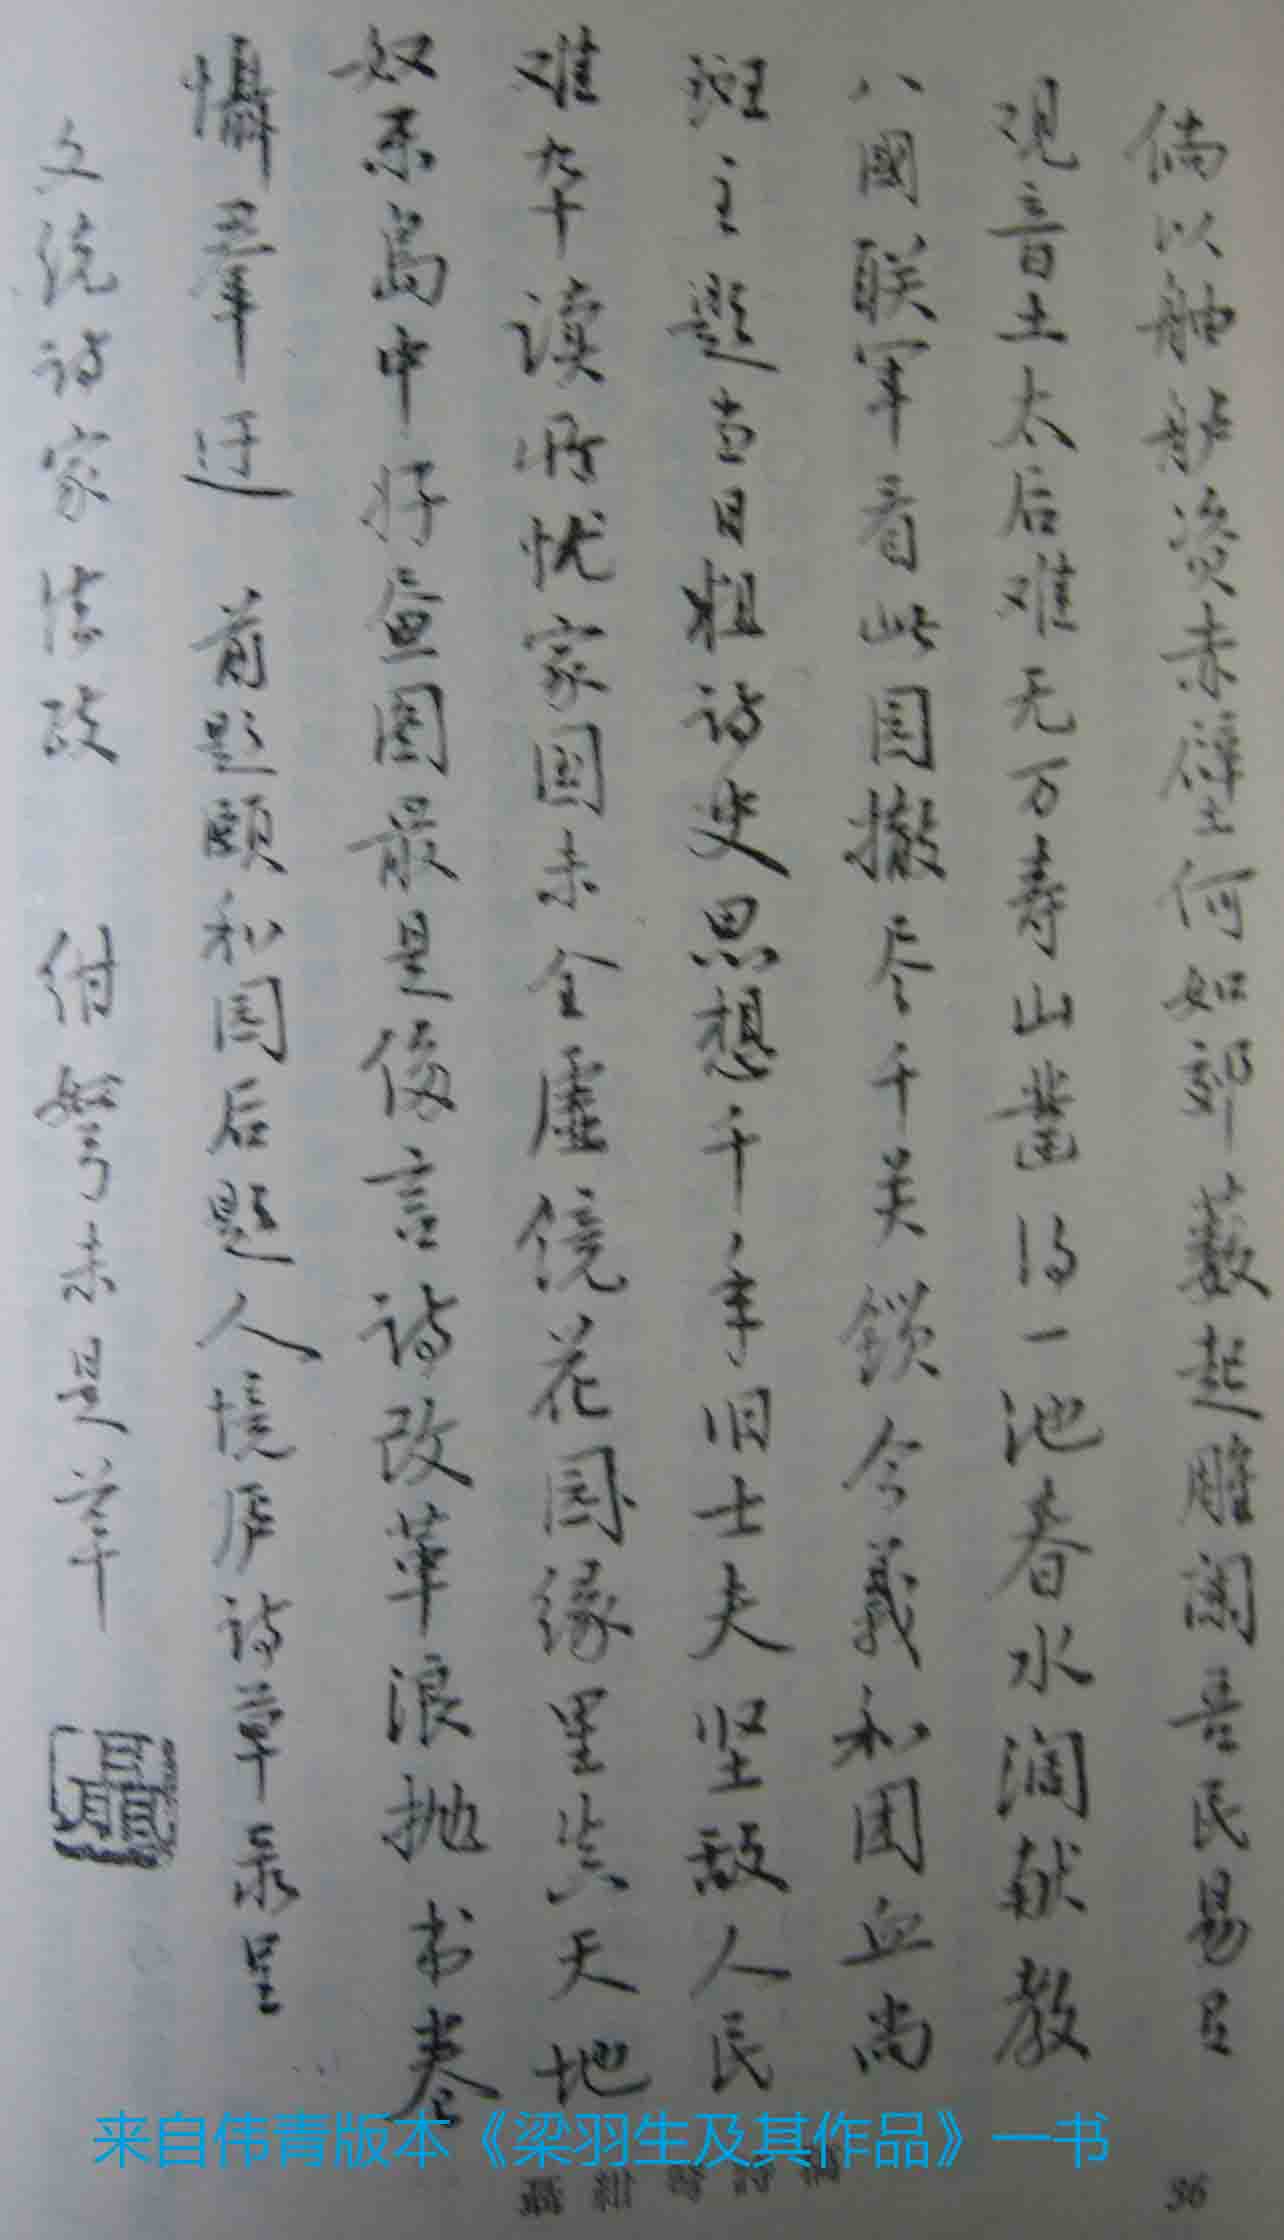 倘以舳舻资赤壁何如郊薮起雕阑吾民易旦
观音土太后难无万寿山凿得一池春水润献教
八國联军看此园撤尽千关锁今義和团血尚
斑主题当日粗诗史思想千年旧士夫坚敌人民
难卒读所忧家国未全虚镜花园缘里岂天地
奴乐岛中好画图最是倭言诗改革浪抛书卷
慑群迂 前题颐和园后题人境庐诗草录呈
文统诗家法政 绀弩未是草
聂
来自伟青版本《梁羽生及其作品》一书
聶紺弩詩
36